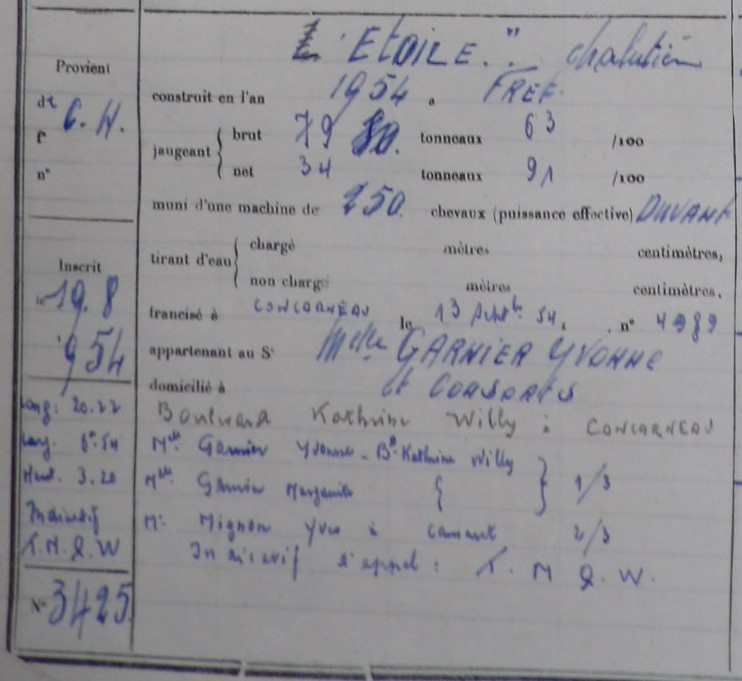 Provient
de C.H.
f°
n°
Inscrit
le 19.8
1954
Long: 20.22
Larg. 6m.54
Haut. 3.20
Indicatif
T.M.Q.W
N° 3425
"ETOILE." chalutier
construit en l'an 1954 a TREF.
jaugeant brut 79 80. tonneaux 63 /100
net 34 tonneaux 91 /100
muni d'une machine de 250. chevaux (puissance effective) DUVANT
tirant d'eau chargé mètres centimètres,
non chargé mètres centimètres.
francisé à CONCARNEAU le 13 54, n° 4989
appartenant au Sr Melle GARNIER YVONNE
domicilié à et CONSORTS
Boulevard Kathrine Willy à CONCARNEAU
Melle Garnier Yvonne - Bd Kathrine Willy
Melle Garnier Marguerite { } 1/3
Mr Mignon Yves à Camaret 2/3
Indicatif d'appel : T. M Q. W.